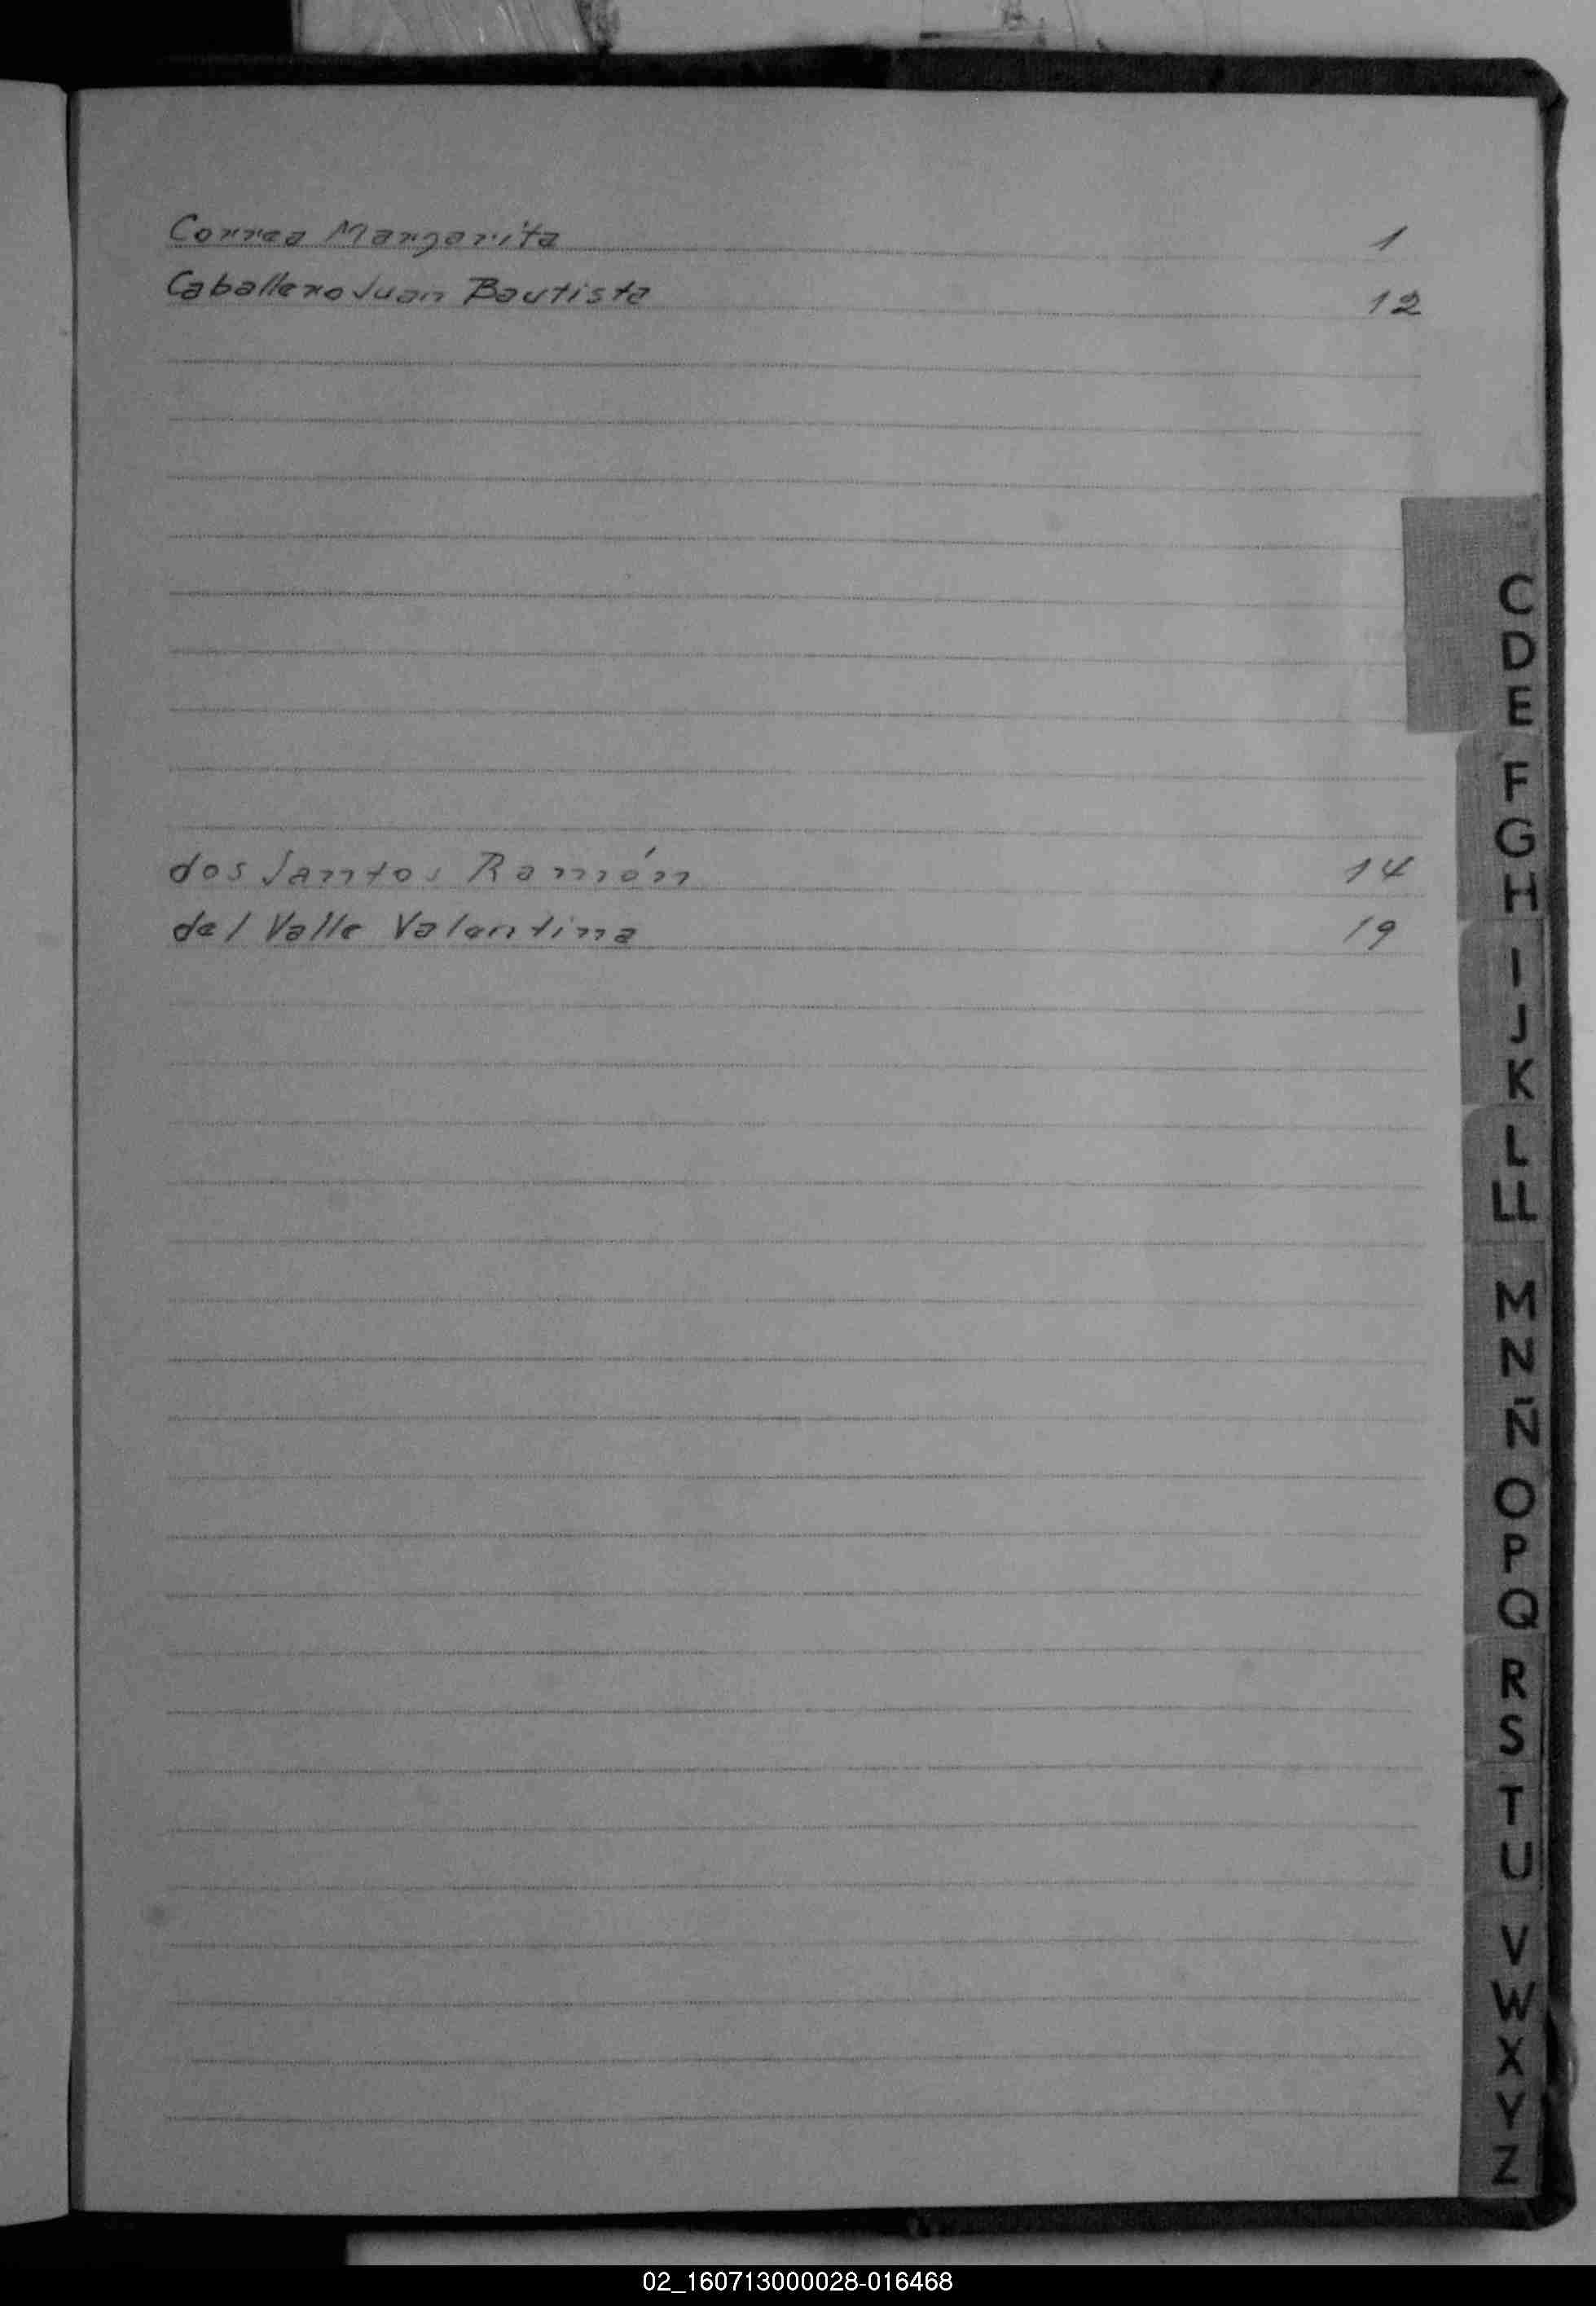 Correa Margarita 1
Caballero Juan Bautista 12
dos Santos Ramón 14
del Valle Valentina 19
C
D
E
F
G
H
I
J
K
L
LL
M
N
Ñ
O
P
Q
R
S
T
U
V
W
X
Y
Z
02_160713000028-016468